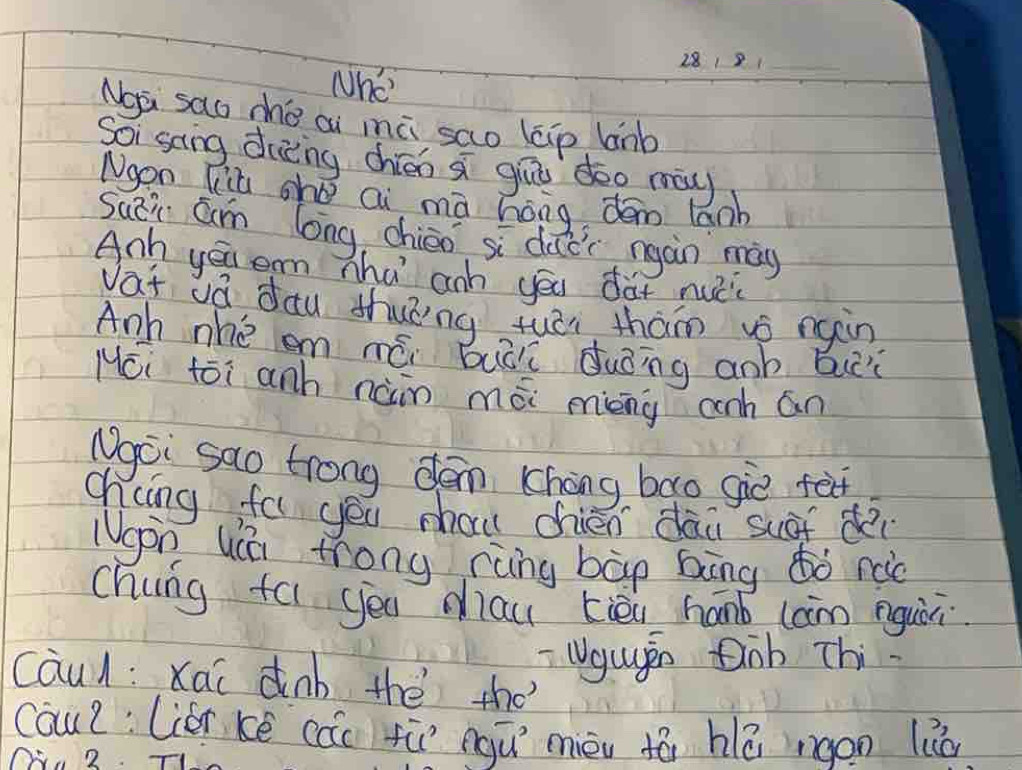 28 / 8 /
Nhớ
Ngôi sao nhớ ai mà sao lấp lánh
Soi sáng đường chiến sĩ giữa đèo mây
Ngọn lửa nhớ ai mà hồng đêm lạnh
Sưởi ấm lòng chiến sĩ dưới ngàn cây
Anh yêu em như anh yêu đất nước
Vất vả đau thương tươi thắm vô ngần
Anh nhớ em mỗi bước đường anh bước
Mỗi tối anh nằm mỗi miếng anh ăn
Ngôi sao trong đêm không bao giờ tắt
Chúng ta yêu nhau chiến đấu suốt đời
Ngọn lửa trong rừng bập bùng đỏ rực
Chúng ta yêu nhau kiêu hãnh làm người.
- Nguyễn Đình Thi -
Câu 1: Xác định thể thơ
Câu 2: Liệt kê các từ ngữ miêu tả h/ả ngọn lửa
Câu 3: